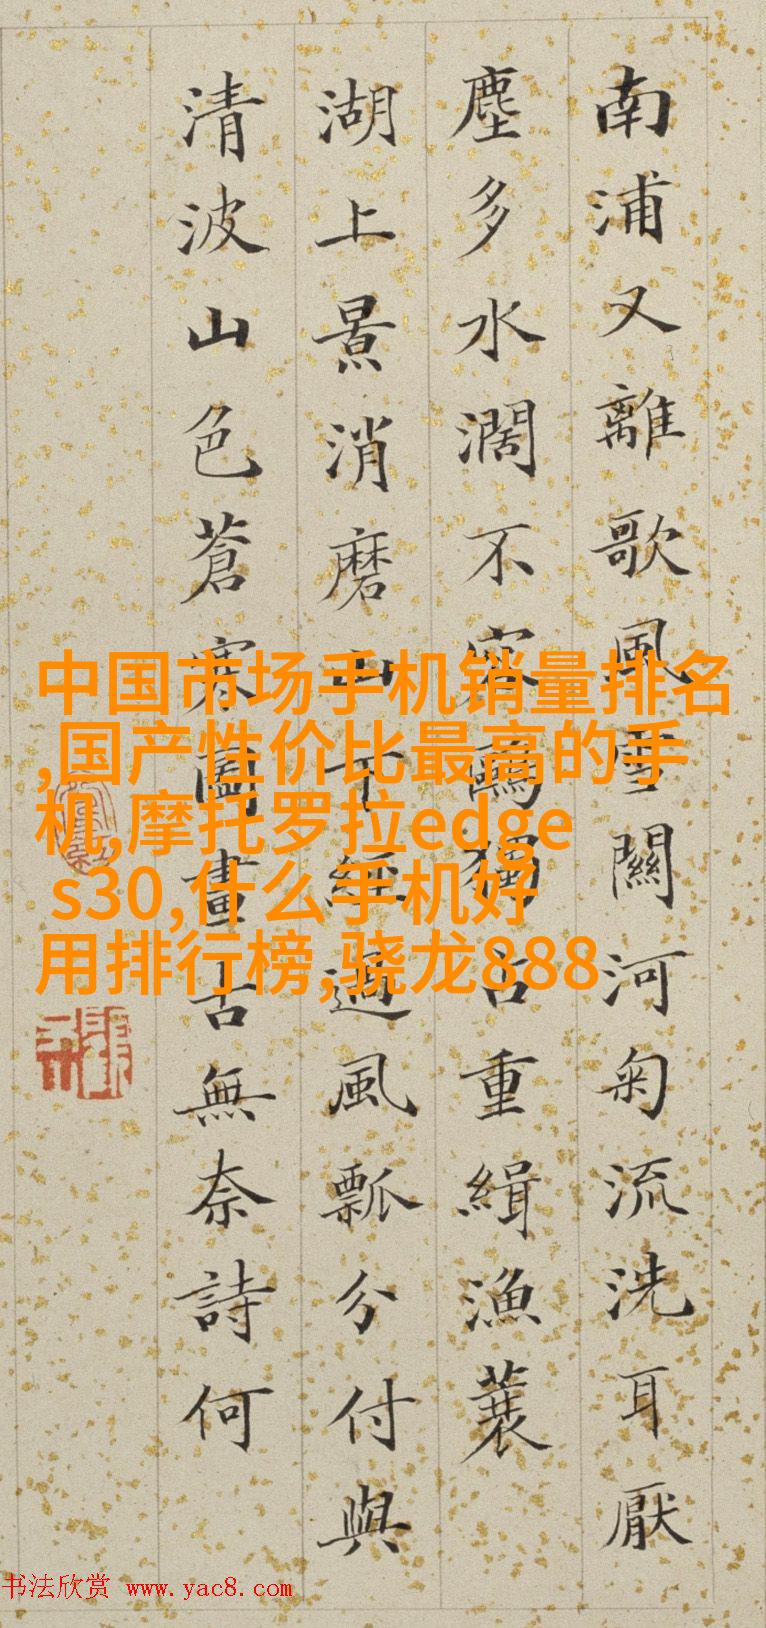 南浦又離歌風雪關河菊流洗耳厭
塵多水濶不容鷗獨占重緝漁蓑
湖上景消磨山下經過風瓢分付與
清波山色蒼寒圖畫古無奈詩何
中国市场手机销量排名
,国产性价比最高的手
机,摩托罗拉edge
s30,什么手机好
用排行榜,骁龙888
书法欣赏 www.yac8.com